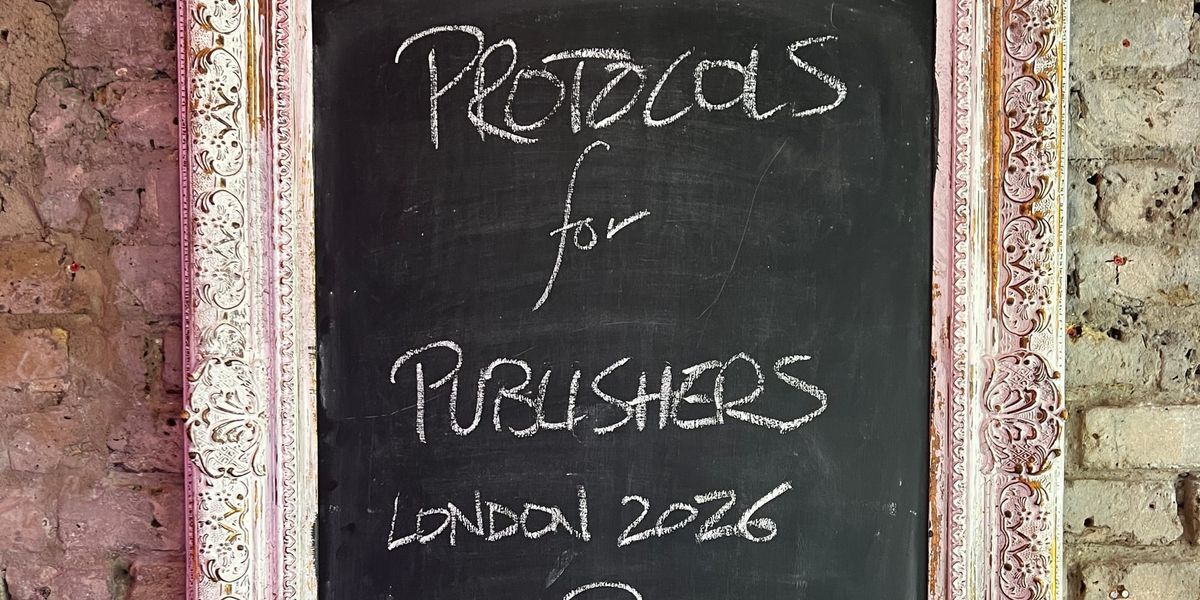 PROTOCOLS
for
PUBLISHERS
LONDON 2026